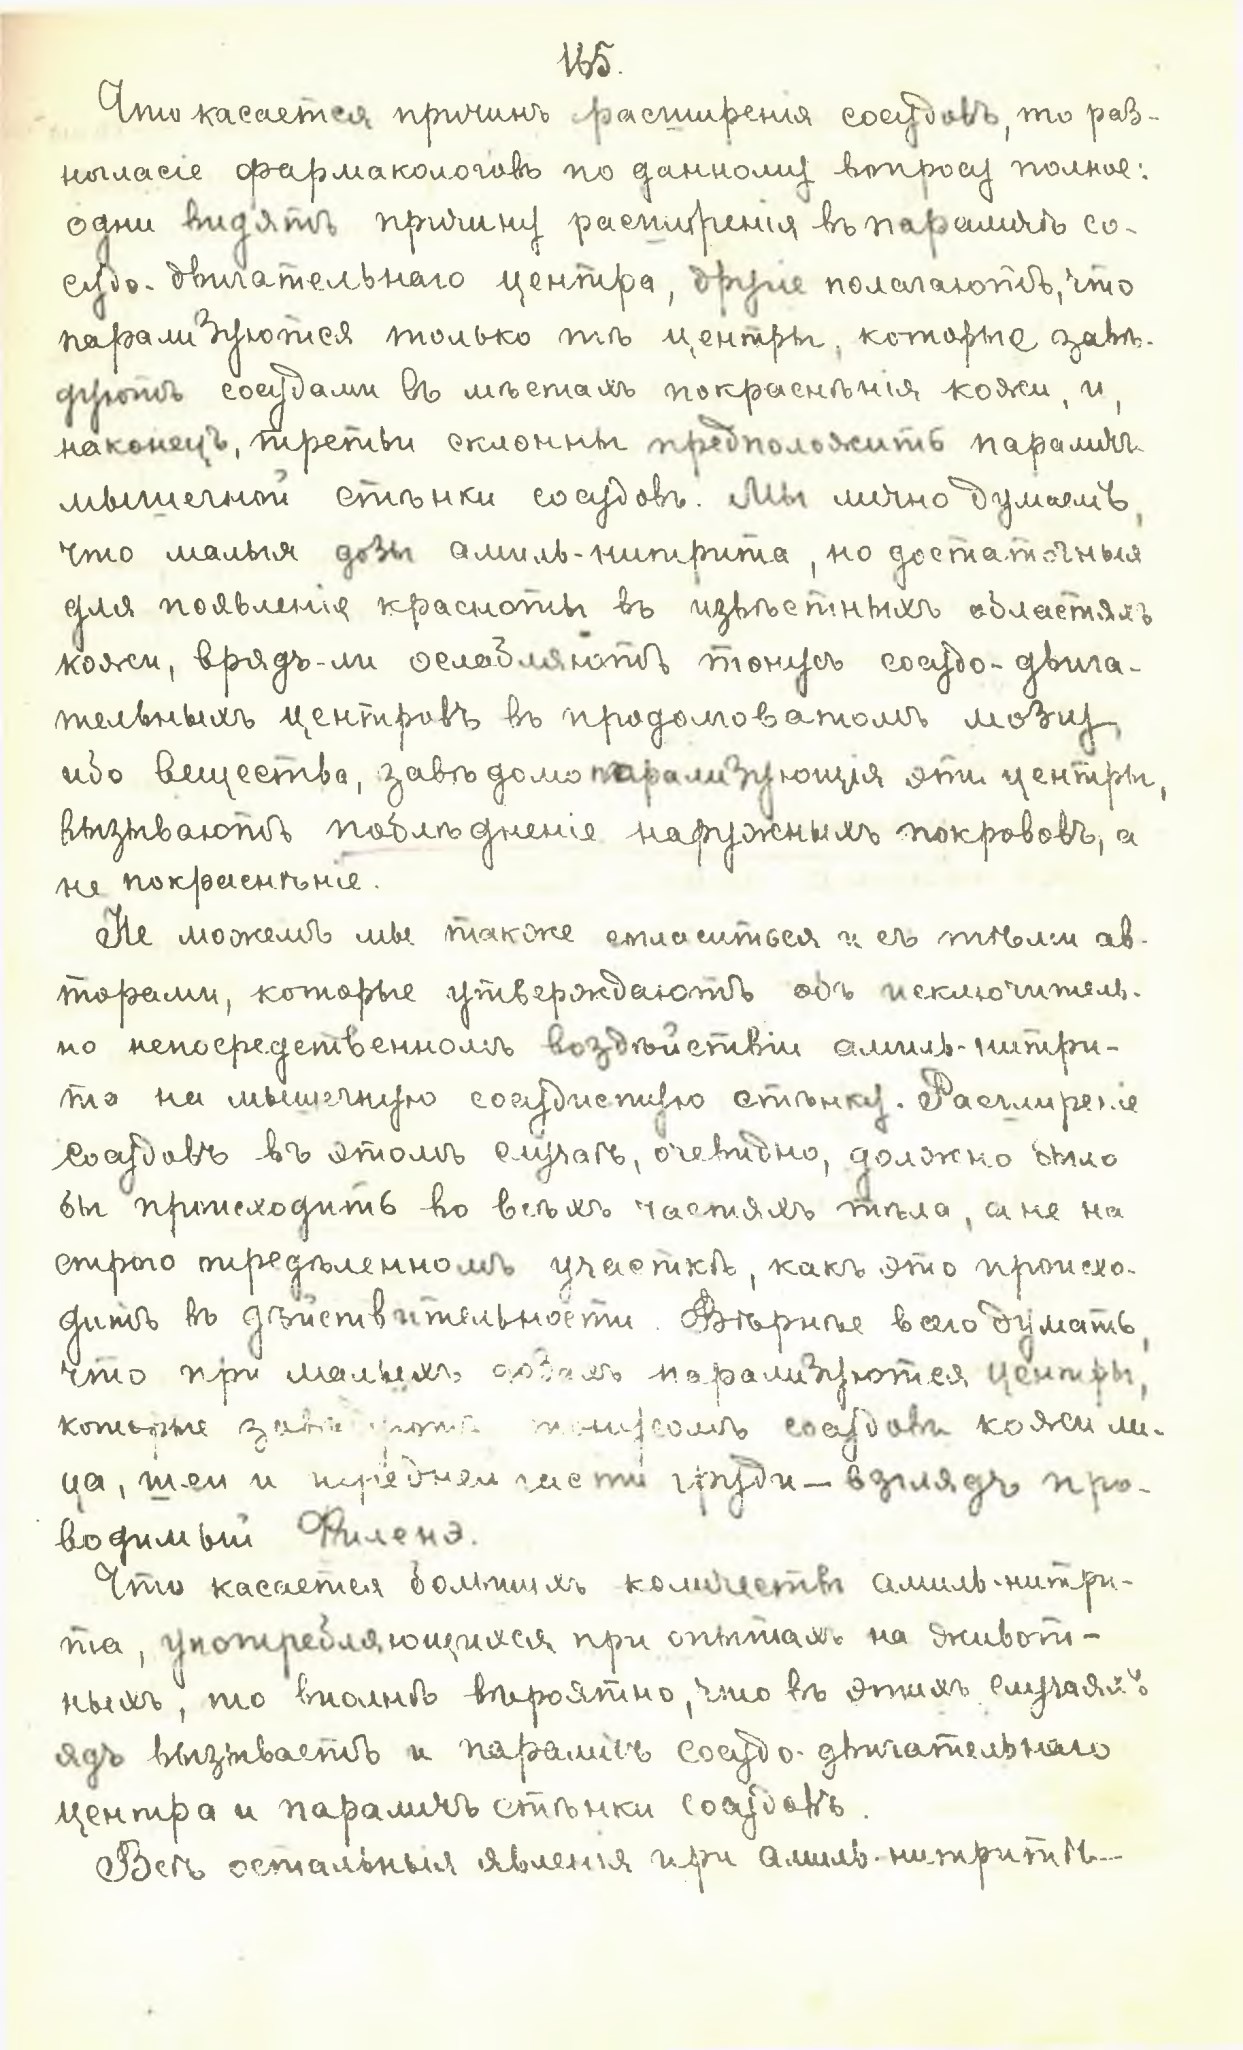 165.
Что касается причинъ расширенія сосудовъ, то раз-
ногласіе фармакологовъ по данному вопросу полное:
одни видятъ причину расширенія въ параличѣ со-
судо-двигательнаго центра, другіе полагаютъ, что
парализуются только тѣ центры, которые завѣ-
дуютъ сосудами въ мѣстахъ покраснѣнія кожи, и,
наконецъ, третьи склонны предположить параличъ
мышечной стѣнки сосудовъ. Мы лично думаемъ,
что малыя дозы амиль-нитрита, но достаточныя
для появленія красноты въ извѣстныхъ областяхъ
кожи, врядъ-ли ослабляютъ тонусъ сосудо-двига-
тельныхъ центровъ въ продолговатомъ мозгу,
ибо вещества, завѣдомо парализующія эти центры,
вызываютъ поблѣднение наружныхъ покрововъ, а
не покраснѣніе.
Не можемъ мы также согласиться и съ тѣми ав-
торами, которые утверждаютъ объ исключитель-
но непосредственномъ воздѣйствіи амиль-нитри-
та на мышечную сосудистую стѣнку. Расширеніе
сосудовъ въ этомъ случаѣ, очевидно, должно было
бы происходить во всѣхъ частяхъ тѣла, а не на
строго опредѣленномъ участкѣ, какъ это происхо-
дитъ въ дѣйствительности. Вѣрнѣе всего думать,
что при малыхъ дозахъ парализуются центры,
которые завѣдуютъ тонусомъ сосудовъ кожи ли-
ца, шеи и передней части груди — взглядъ про-
водимый Филенэ.
Что касается большихъ количествъ амиль-нитри-
та, употребляющихся при опытахъ на живот-
ныхъ, то вполнѣ вѣроятно, что въ этихъ случаяхъ
ядъ вызываетъ и параличъ сосудо-двигательнаго
центра и параличъ стѣнки сосудовъ.
Всѣ остальныя явленія при амиль-нитритѣ—